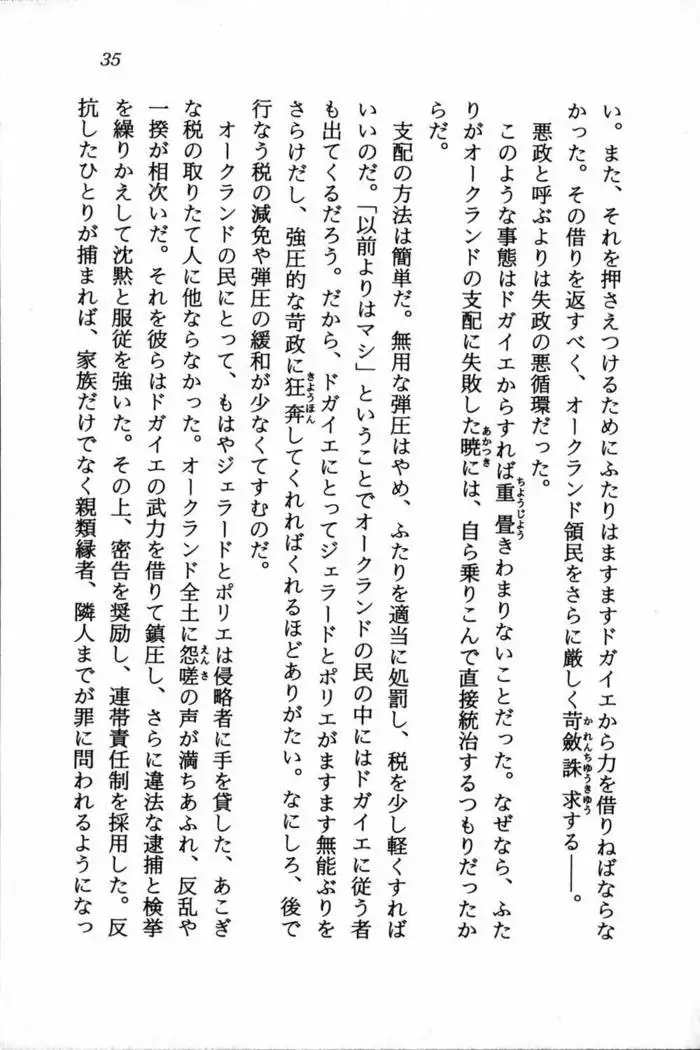 35
い。また、それを押さえつけるためにふたりはますますドガイエから力を借りねばならな
かった。その借りを返すべく、オークランド領民をさらに厳しく苛斂誅求する――。
悪政と呼ぶよりは失政の悪循環だった。
このような事態はドガイエからすれば重畳きわまりないことだった。なぜなら、ふた
りがオークランドの支配に失敗した暁には、自ら乗りこんで直接統治するつもりだったか
らだ。
支配の方法は簡単だ。無用な弾圧はやめ、ふたりを適当に処罰し、税を少し軽くすれば
いいのだ。「以前よりはマシ」ということでオークランドの民の中にはドガイエに従う者
も出てくるだろう。だから、ドガイエにとってジェラードとポリエがますます無能ぶりを
さらけだし、強圧的な苛政に狂奔してくれればくれるほどありがたい。なにしろ、後で
行なう税の減免や弾圧の緩和が少なくてすむのだ。
オークランドの民にとって、もはやジェラードとポリエは侵略者に手を貸した、あこぎ
な税の取りたて人に他ならなかった。オークランド全土に怨嗟の声が満ちあふれ、反乱や
一揆が相次いだ。それを彼らはドガイエの武力を借りて鎮圧し、さらに違法な逮捕と検挙
を繰りかえして沈黙と服従を強いた。その上、密告を奨励し、連帯責任制を採用した。反
抗したひとりが捕まれば、家族だけでなく親類縁者、隣人までが罪に問われるようになっ